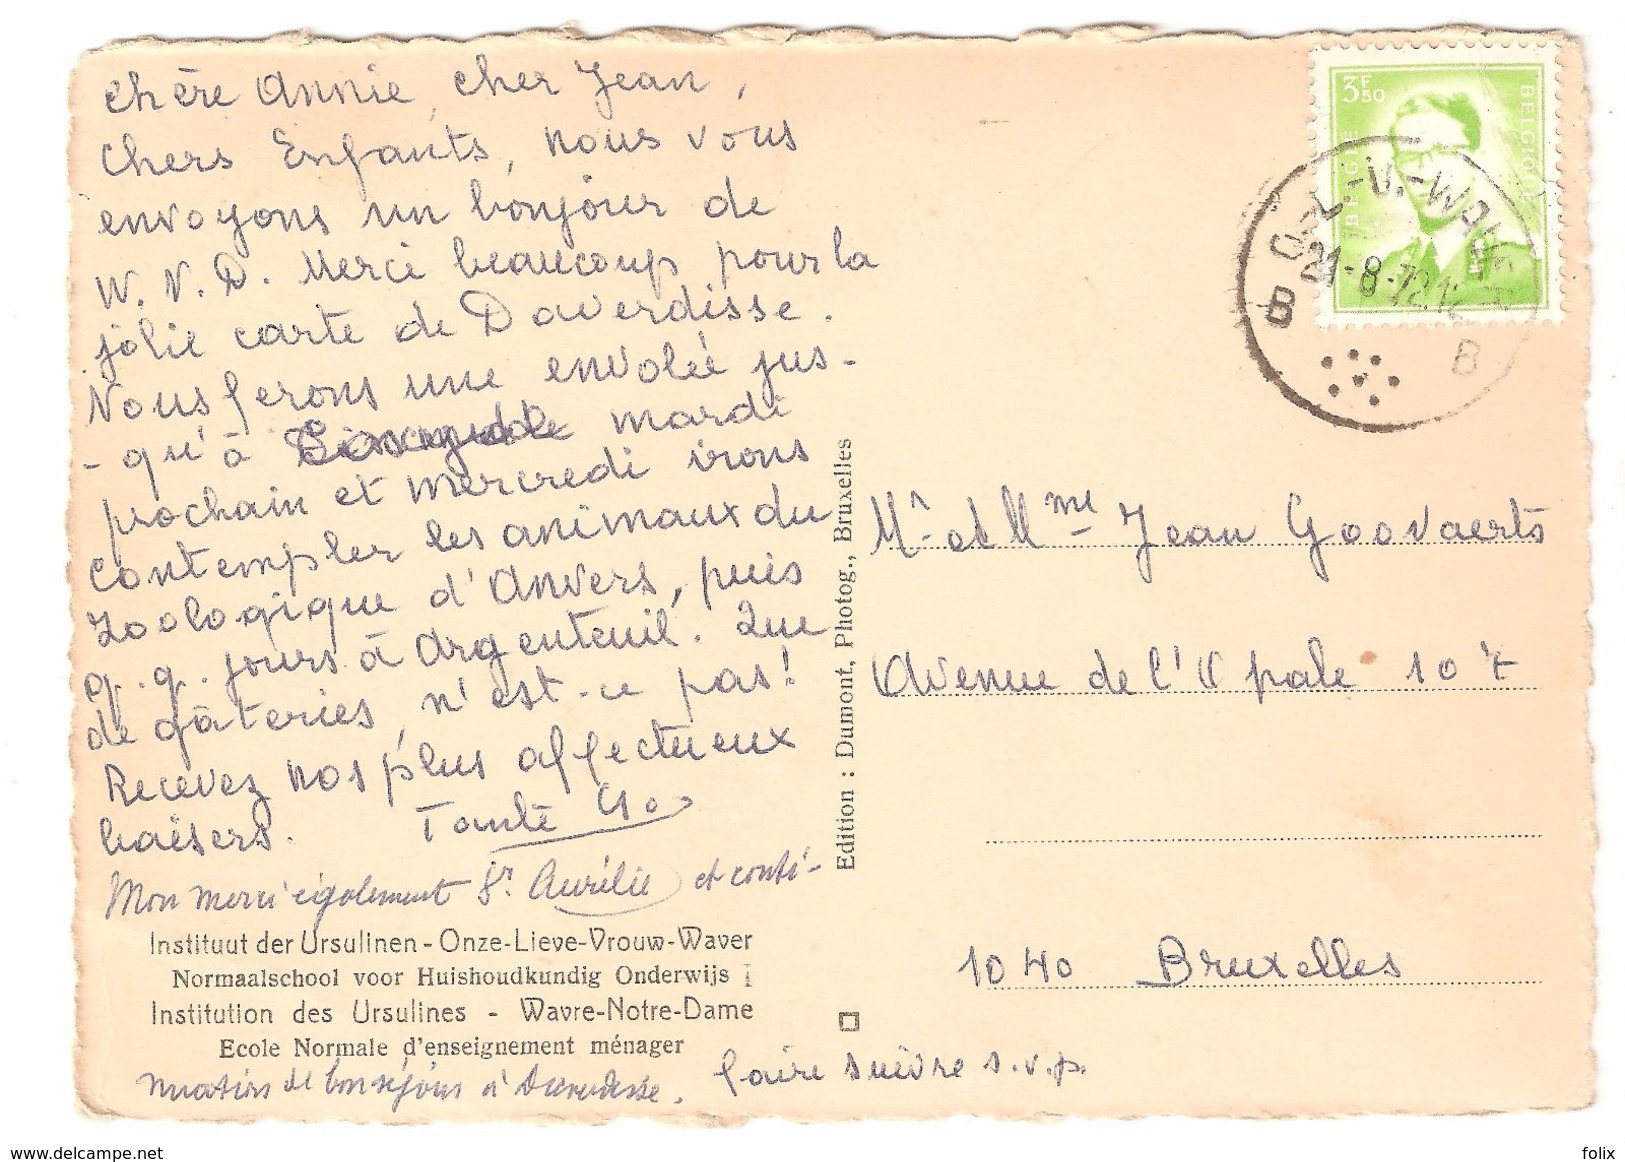 chère Annie, cher Jean,
Chers Enfants, nous vous
envoyons un bonjour de
W. N. D. Merci beaucoup pour la
jolie carte de Daverdisse.
Nous ferons une envolée jus-
-qu'à mardi
prochain et mercredi irons
contempler les animaux du
Zoologique d'Anvers, puis
q. q. jours à Argenteuil. Que
de gâteries, n'est-ce pas!
Recevez nos plus affectueux
baisers. Tante
Mon merci également Sr. Aurélie et conti-
Instituut der Ursulinen - Onze-Lieve-Vrouw-Waver
Normaalschool voor Huishoudkundig Onderwijs
Institution des Ursulines - Wavre-Notre-Dame
Ecole Normale d'enseignement ménager
nuation de bon séjour à Daverdisse.
faire suivre s.v.p.
Edition : Dumont, Photog., Bruxelles
3F50
BELGIË BELGIQUE
O.-L.-V.-WAVER
21-8-72
B B
Mr. et Mme Jean Goovaerts
Avenue de l'Opale 107
1040 Bruxelles
folix